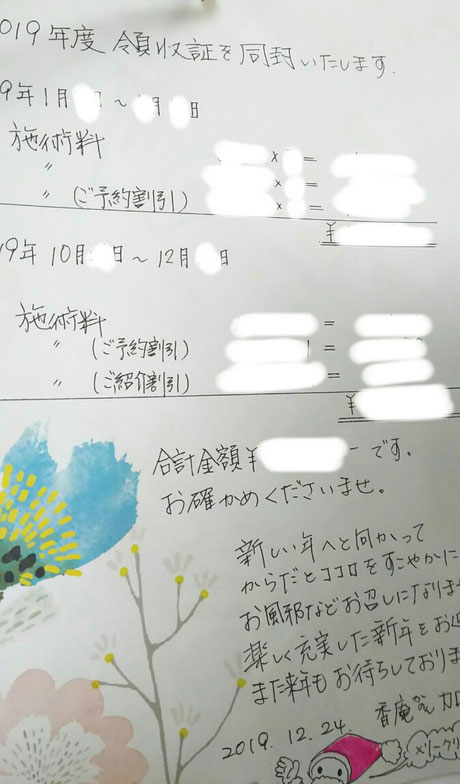 2019年度 領収証を同封いたします.
9年1月 日～ 月 日
施術料
〃 × =
〃 (ご予約割引) × =
× =
¥
19年 10月 日～12月 日
施術料 =
〃 (ご予約割引) =
〃 (ご紹介割引) =
¥
合計金額¥ ーです.
お確かめくださいませ。
新しい年へと向かって
からだとココロをすこやかに
お風邪などお召しになりませ
楽しく充実した新年をお
また来年もお待ちしておりま
香庵かん
2019.12.24
メリークリ